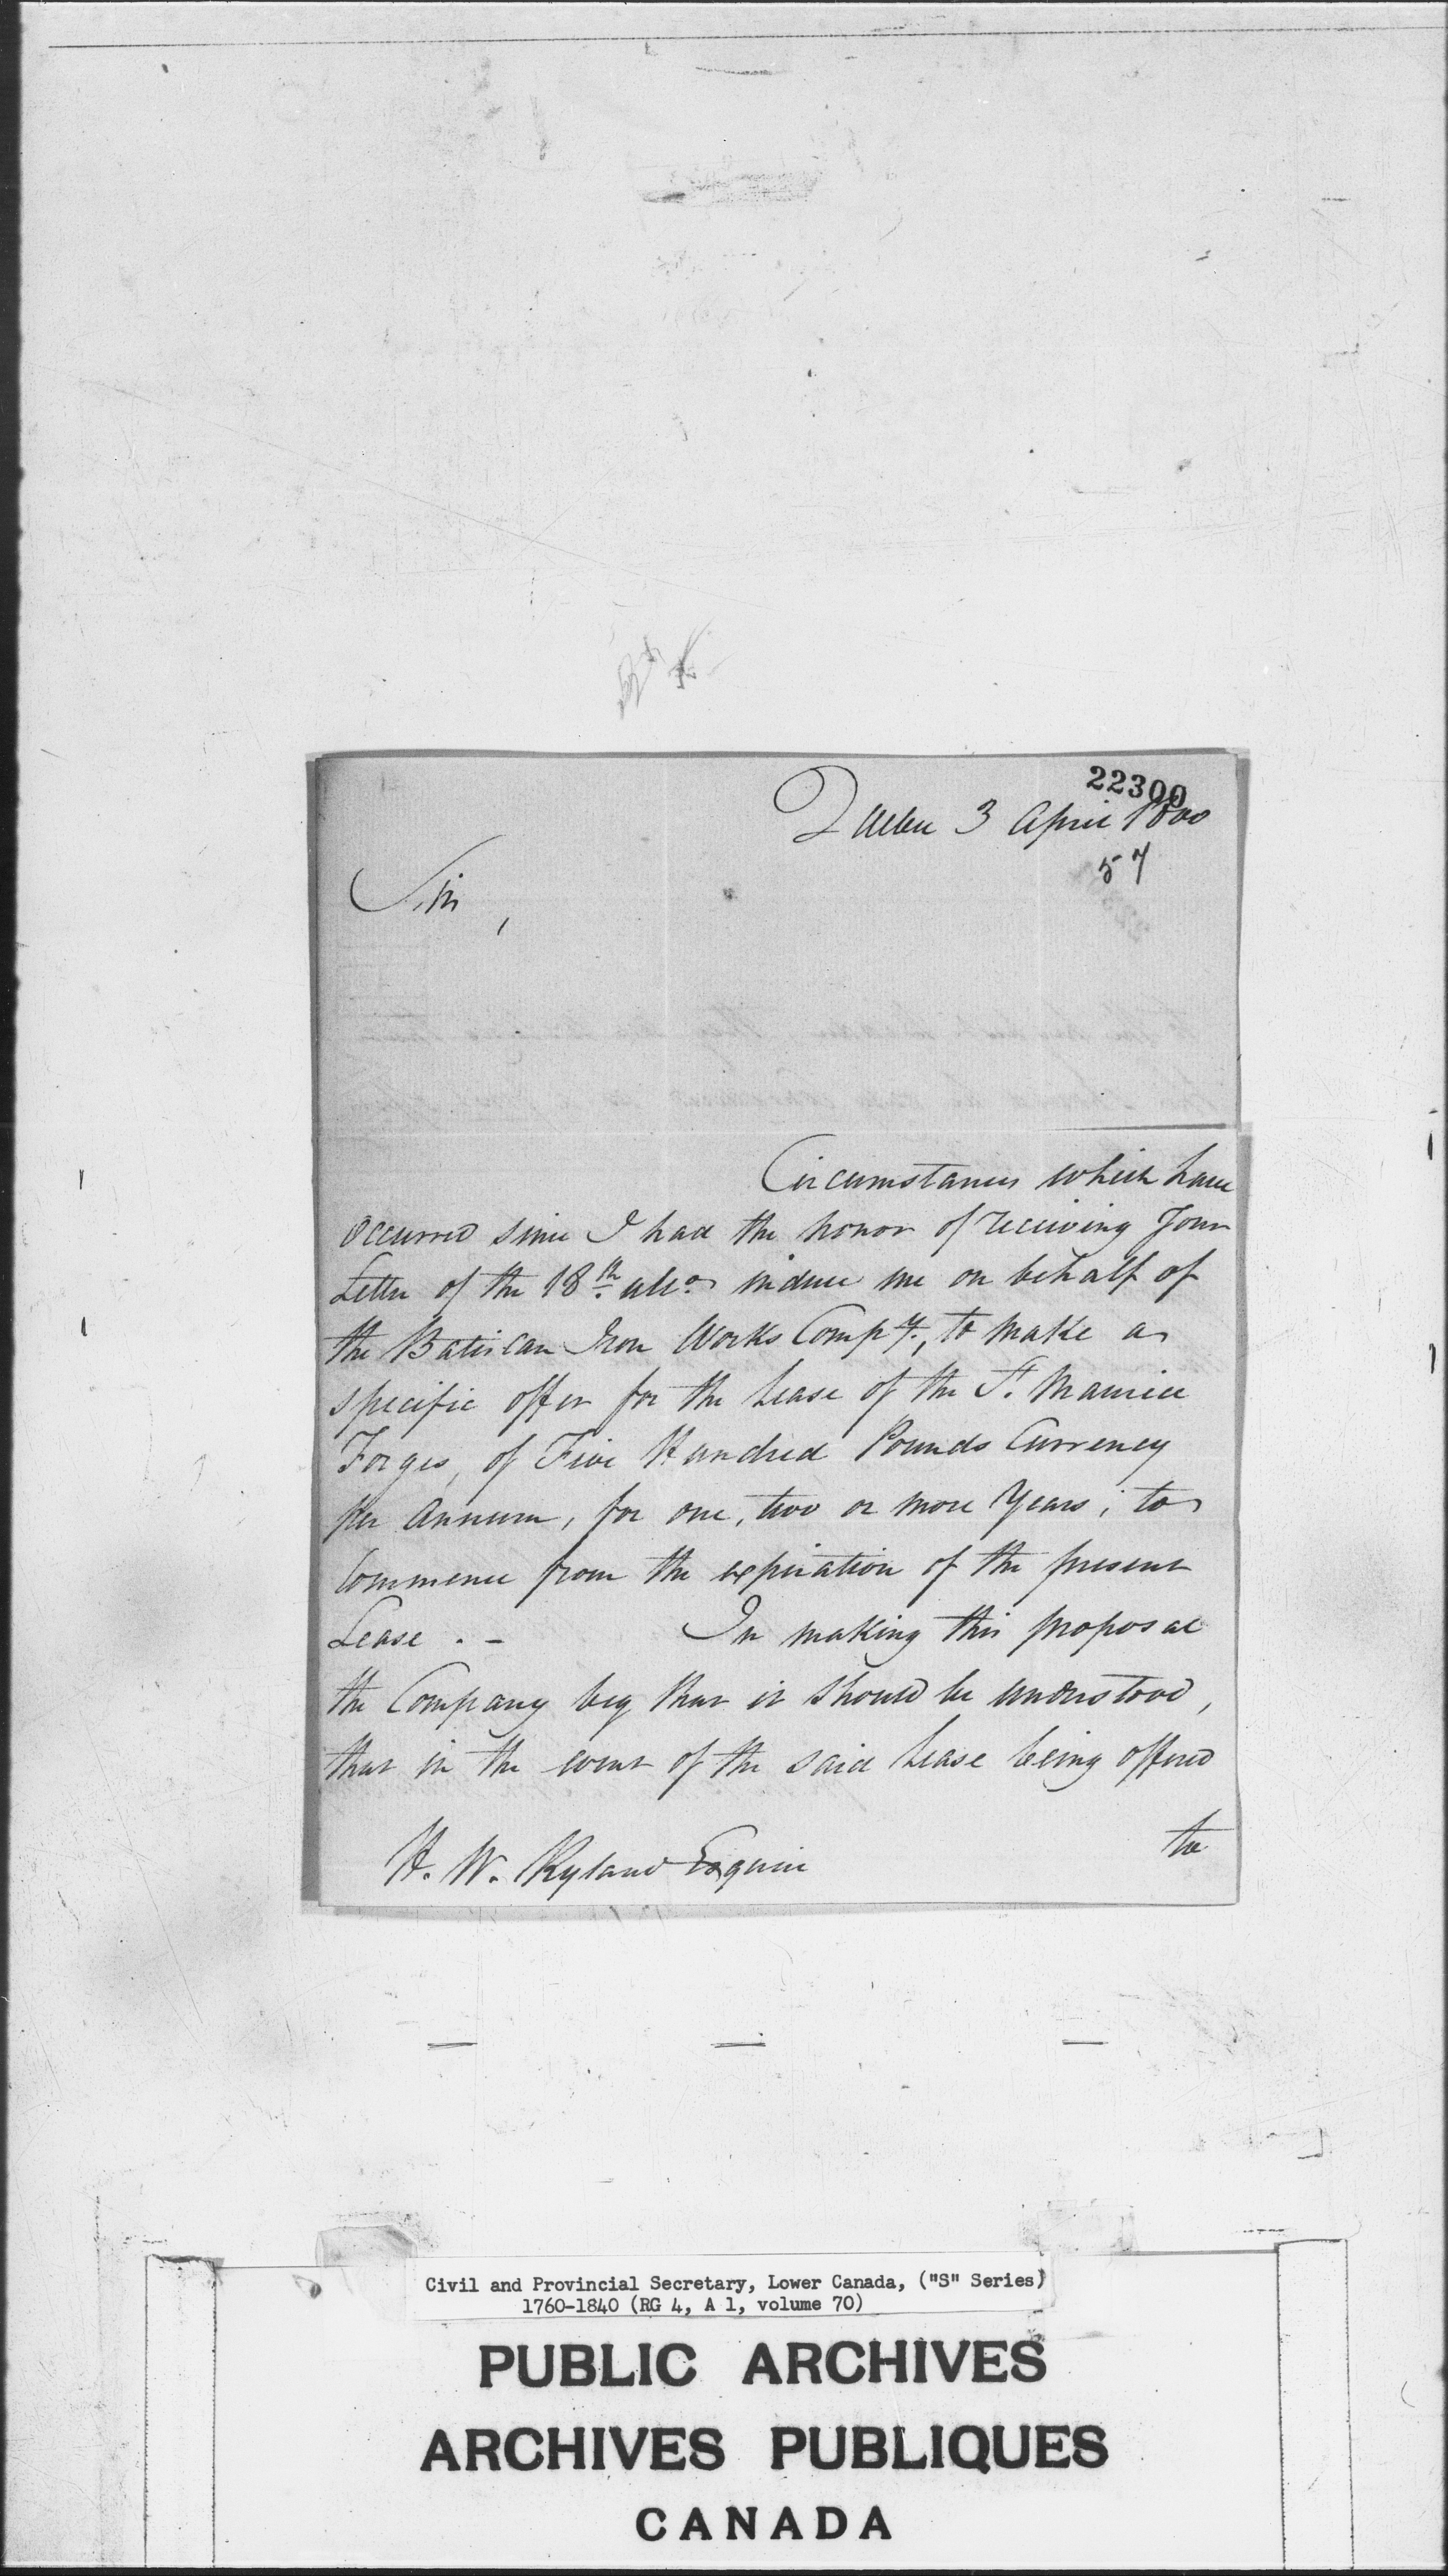 22300
Quebec 3 April 1800
57
Sir,
Circumstances which have
occurred since I had the honor of receiving Your
Letter of the 18th. ulto. induce me on behalf of
the Batiscan Iron Works Compy., to make a
specific offer for the Lease of the St. Maurice
Forges, of Five Hundred Pounds Currency
per Annum, for one, two or more Years; to
commence from the expiration of the present
Lease. - In making this proposal
the Company beg that it should be understood,
that in the event of the said Lease being offered
to
H. W. Ryland Esquire
Civil and Provincial Secretary, Lower Canada, ("S" Series)
1760-1840 (RG 4, A 1, volume 70)
PUBLIC ARCHIVES
ARCHIVES PUBLIQUES
CANADA